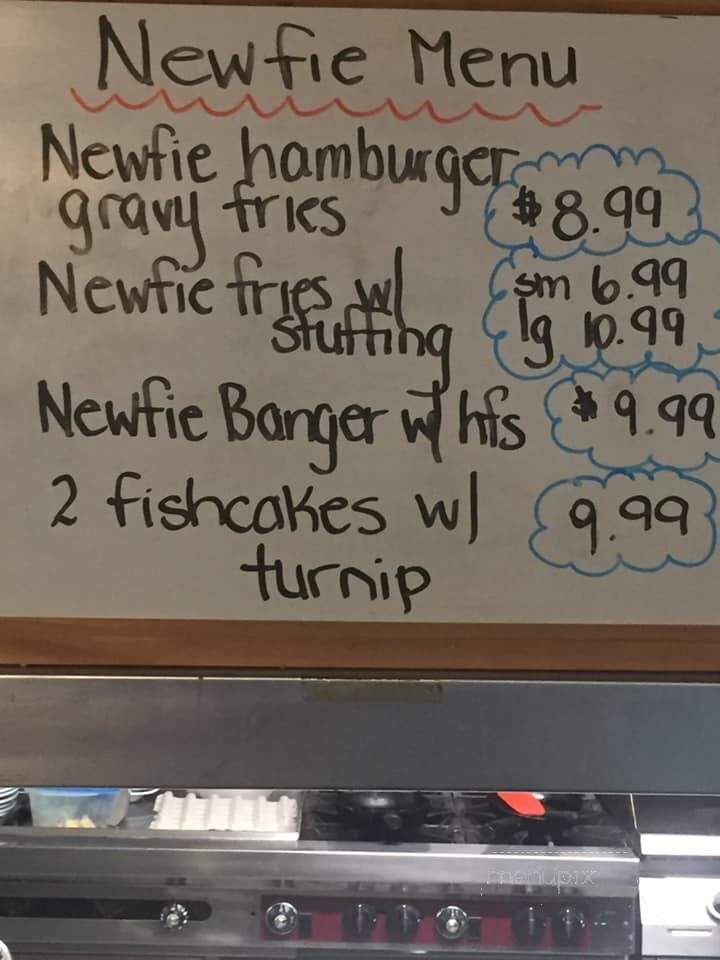 Newfie Menu
Newfie hamburger
gravy fries $8.99
Newfie fries w/ sm 6.99
stuffing lg 10.99
Newfie Banger w/ hfs $9.99
2 fishcakes w/ 9.99
turnip
menupix